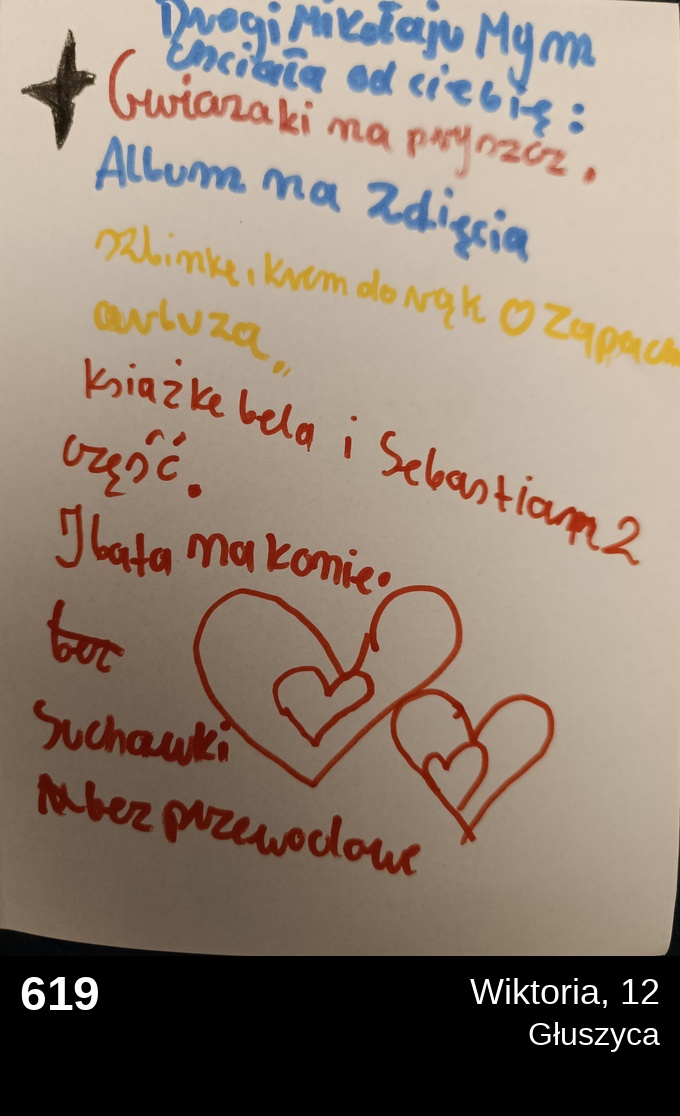 Drogi Mikołaju Mym
chciała od ciebię:
Gwiazdki na pryszcz.
Album na Zdięcia
szlinkę, krem do rąk O Zapach
arbuza,,
książke bela i Sebastiam 2
część.
I bata na konie.
bez
Suchawki
bez przewodowe
619
Wiktoria, 12
Głuszyca